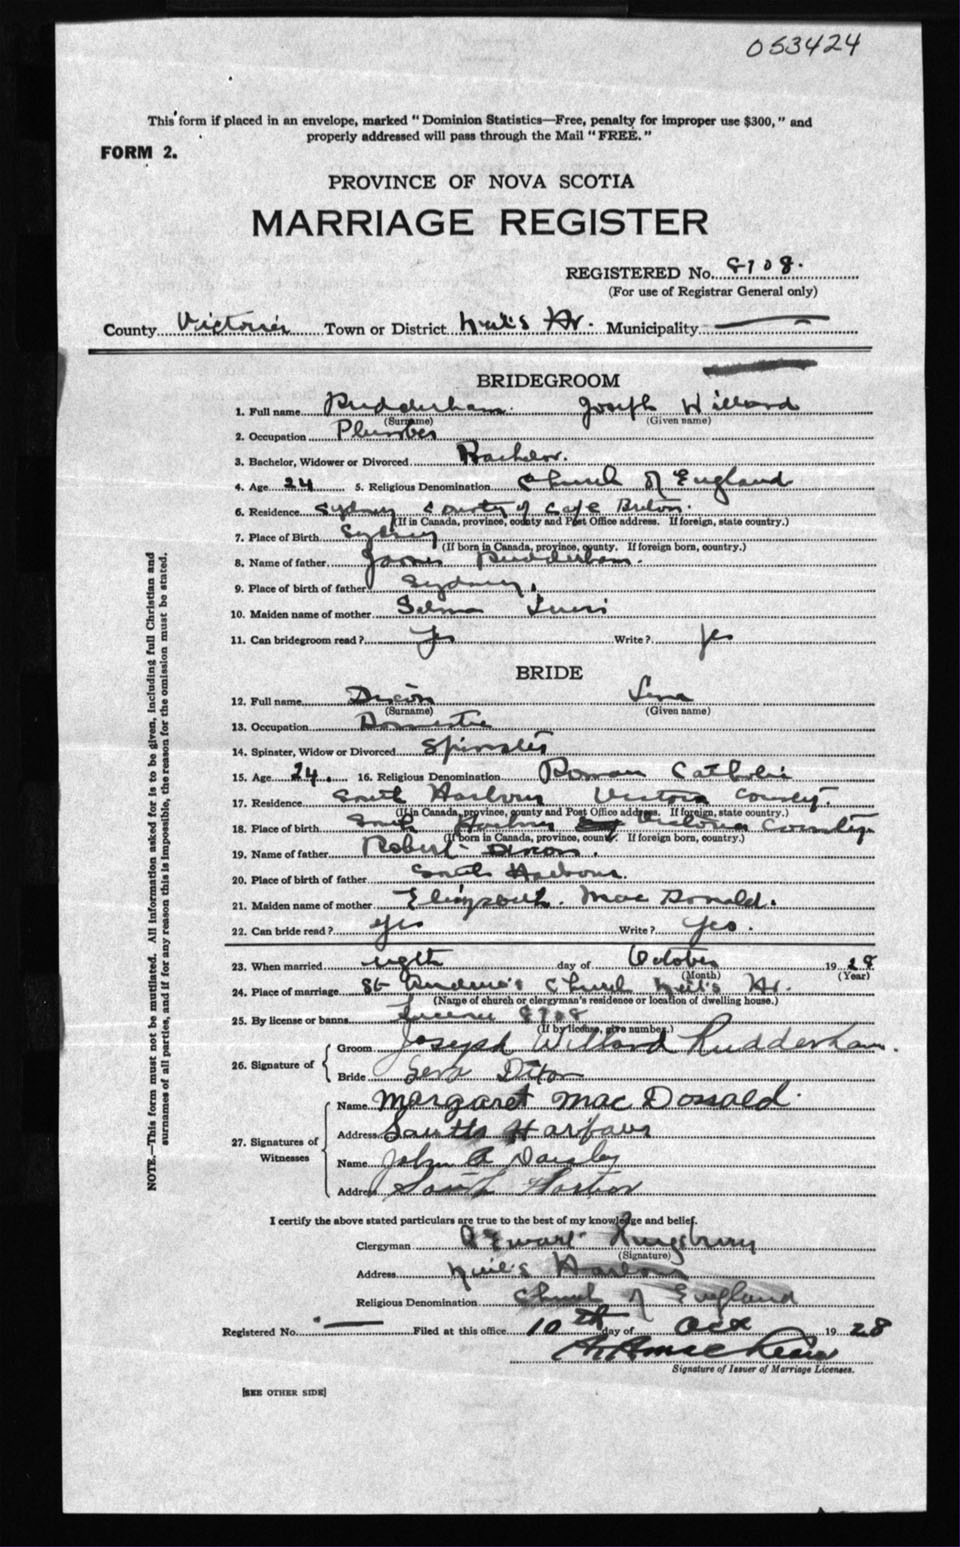 053424
This form if placed in an envelope, marked "Dominion Statistics—Free, penalty for improper use $300," and
properly addressed will pass through the Mail "FREE."
FORM 2.
PROVINCE OF NOVA SCOTIA
MARRIAGE REGISTER
REGISTERED No. 8708.
(For use of Registrar General only)
County Victoria Town or District Neil's Hr. Municipality
BRIDEGROOM
1. Full name Rudderham. Joseph Willard
(Surname) (Given name)
2. Occupation Plumber
3. Bachelor, Widower or Divorced Bachelor.
4. Age 24 5. Religious Denomination Church of England
6. Residence Sydney County of Cape Breton.
(If in Canada, province, county and Post Office address. If foreign, state country.)
7. Place of Birth Sydney
(If born in Canada, province, county. If foreign born, country.)
8. Name of father James Rudderham.
9. Place of birth of father Sydney.
10. Maiden name of mother Selma
11. Can bridegroom read? Yes Write? Yes
BRIDE
12. Full name Dixon Lena
(Surname) (Given name)
13. Occupation Domestic
14. Spinster, Widow or Divorced Spinster
15. Age 24. 16. Religious Denomination Roman Catholic
17. Residence South Harbour Victoria County.
(If in Canada, province, county and Post Office address. If foreign, state country.)
18. Place of birth South Harbour Victoria County
(If born in Canada, province, county. If foreign born, country.)
19. Name of father Robert Dixon.
20. Place of birth of father South Harbour.
21. Maiden name of mother Elizabeth. Mac Donald.
22. Can bride read? Yes Write? Yes.
23. When married day of October 1928
(Month) (Year)
24. Place of marriage St Andrew's Church Neil's Hr.
(Name of church or clergyman's residence or location of dwelling house.)
25. By license or banns License 8708
(If by license, give number.)
26. Signature of
Groom Joseph Willard Rudderham.
Bride Dixon
27. Signatures of Witnesses
Name Margaret Mac Donald.
Address South Harbour
Name John A
Address South Harbor
NOTE.—This form must not be mutilated. All information asked for is to be given, including full Christian and
surnames of all parties, and if for any reason this is impossible, the reason for the omission must be stated.
I certify the above stated particulars are true to the best of my knowledge and belief.
Clergyman
(Signature)
Address Neil's Harbour
Religious Denomination Church of England
Registered No. Filed at this office 10th day of Oct 1928
Signature of Issuer of Marriage Licenses.
[SEE OTHER SIDE]